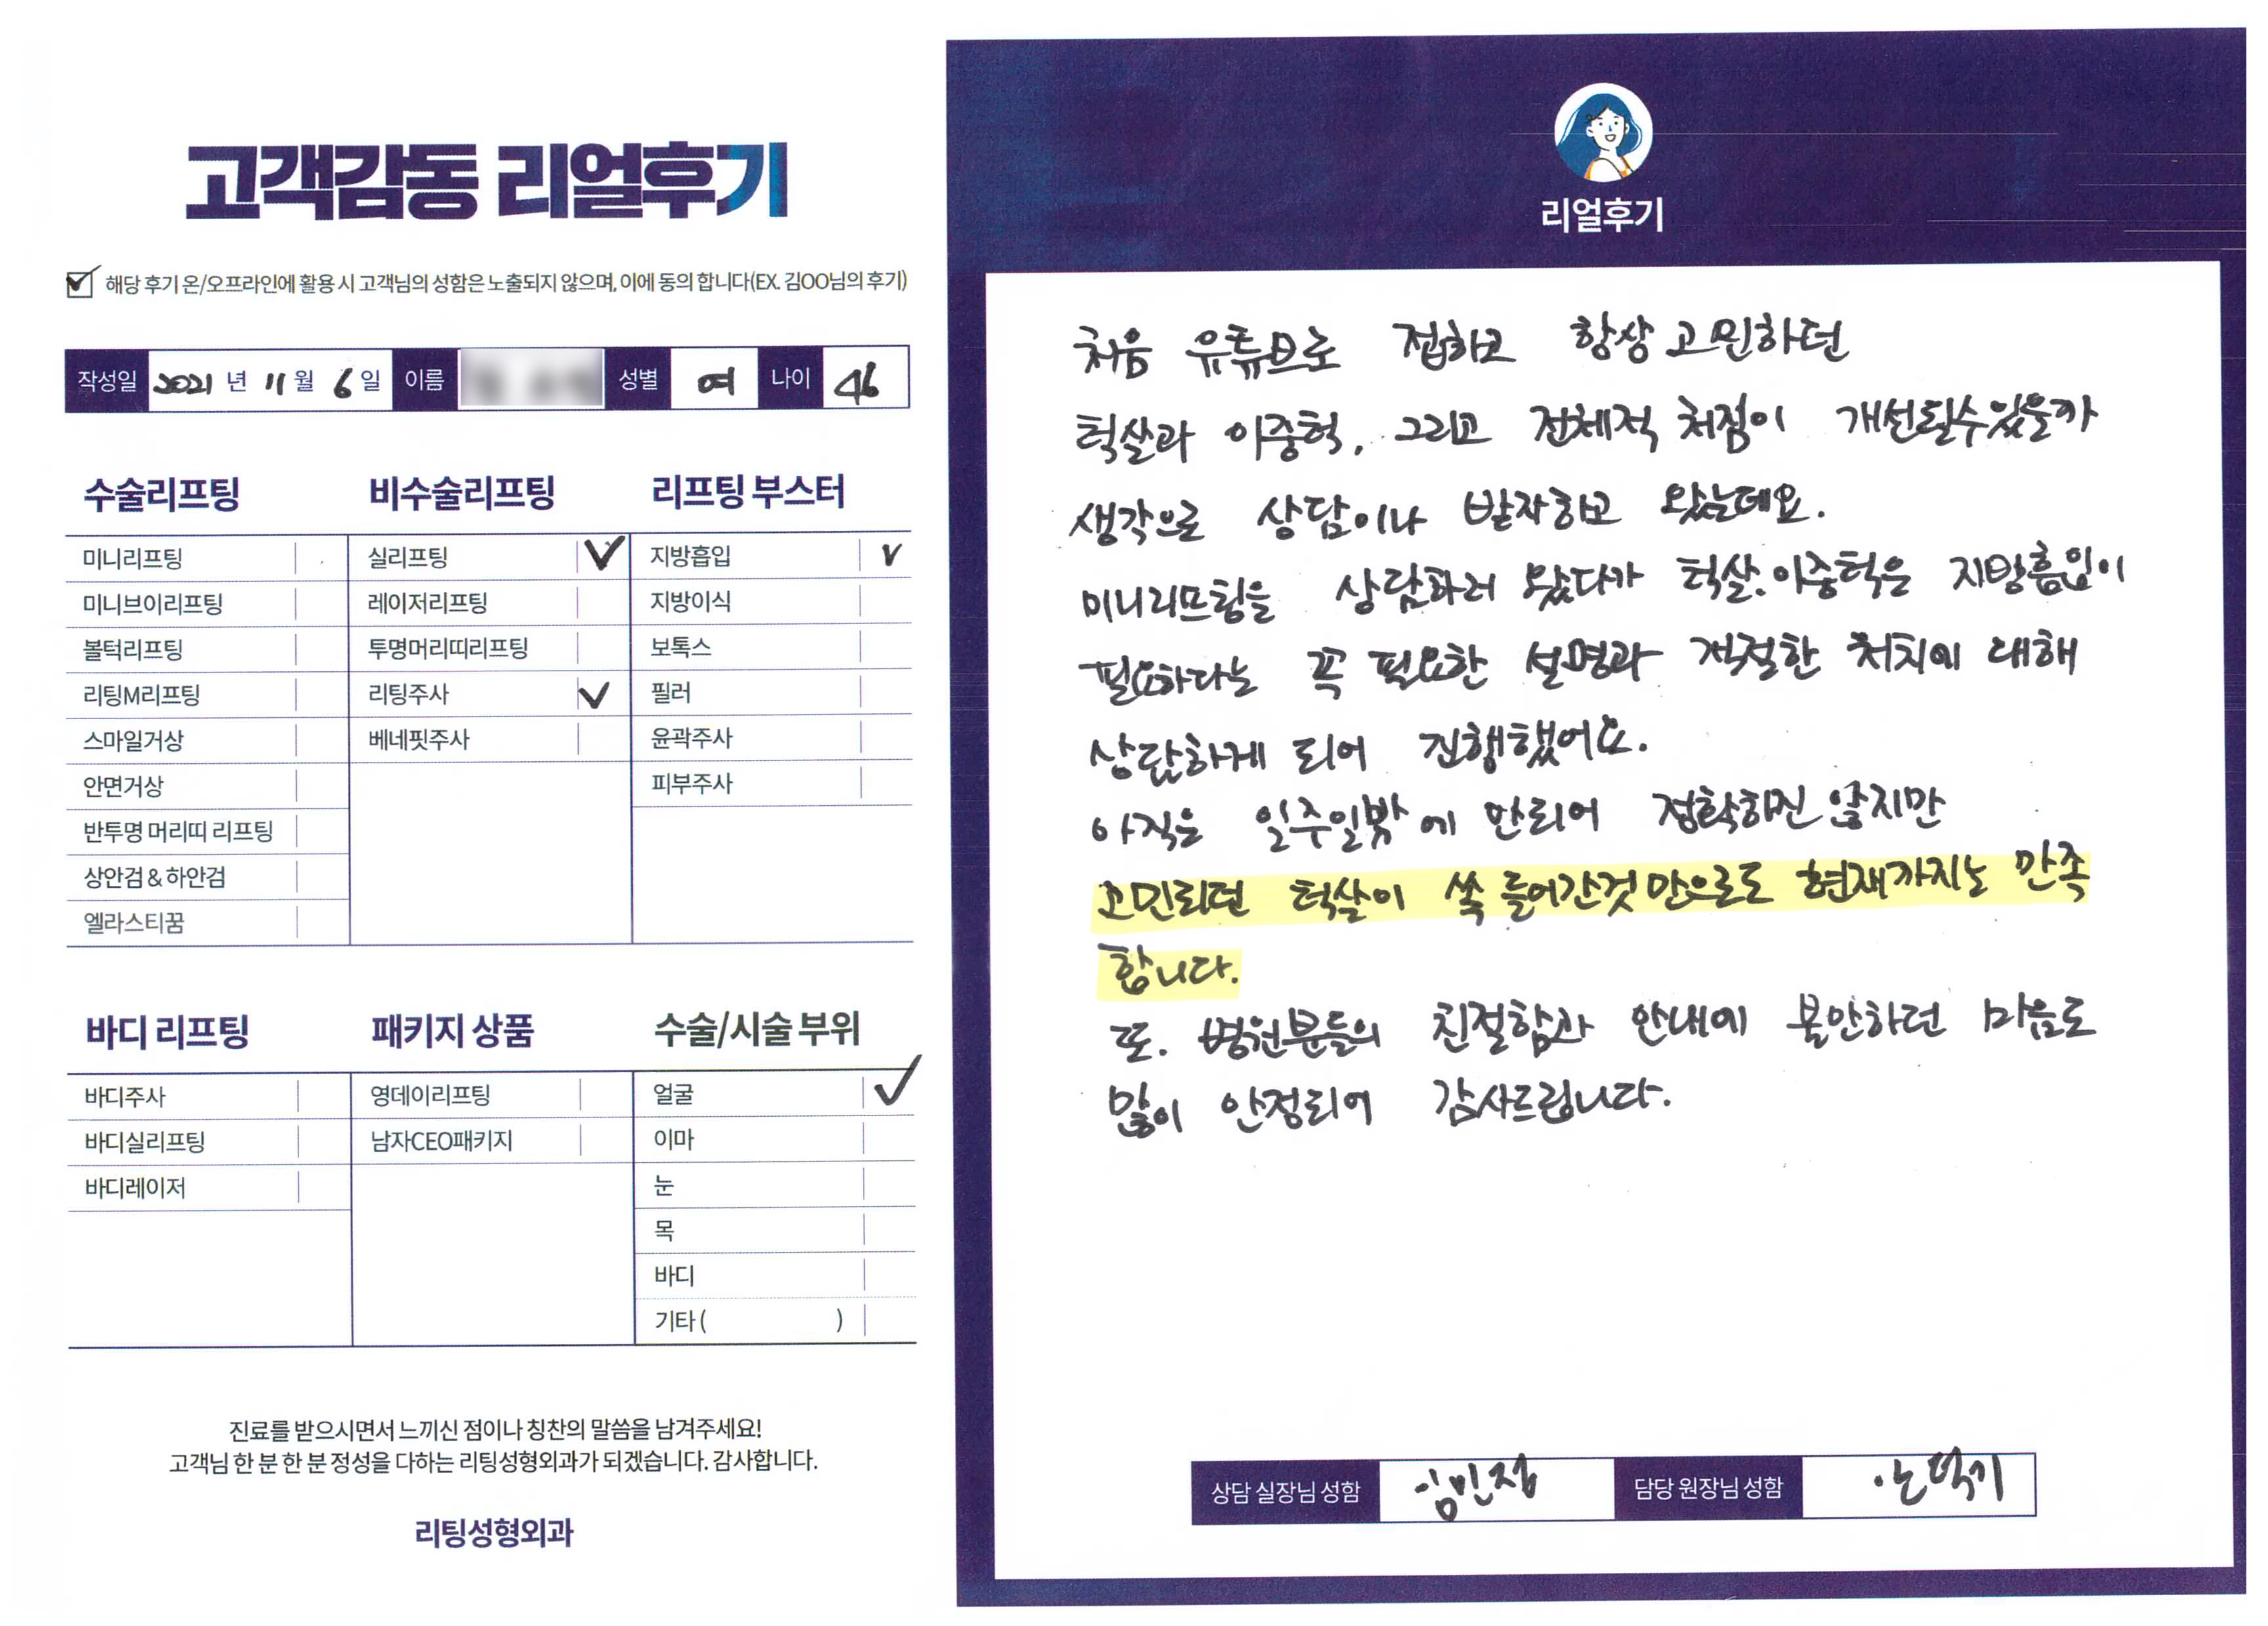 고객감동 리얼후기
해당 후기 온/오프라인에 활용 시 고객님의 성함은 노출되지 않으며, 이에 동의 합니다(EX. 김OO님의 후기)
작성일 2021 년 11 월 6 일 이름 성별 여 나이 46
수술리프팅
미니리프팅
미니브이리프팅
볼턱리프팅
리팅M리프팅
스마일거상
안면거상
반투명 머리띠 리프팅
상안검 & 하안검
엘라스티꿈
비수술리프팅
실리프팅
레이저리프팅
투명머리띠리프팅
리팅주사
베네핏주사
리프팅 부스터
지방흡입
지방이식
보톡스
필러
윤곽주사
피부주사
바디 리프팅
바디주사
바디실리프팅
바디레이저
패키지 상품
영데이리프팅
남자CEO패키지
수술/시술 부위
얼굴
이마
눈
목
바디
기타 ( )
진료를 받으시면서 느끼신 점이나 칭찬의 말씀을 남겨주세요!
고객님 한 분 한 분 정성을 다하는 리팅성형외과가 되겠습니다. 감사합니다.
리팅성형외과
리얼후기
처음 유튜브로 접하고 항상 고민하던
턱살과 이중턱, 그리고 전체적 처짐이 개선될수있을까
생각으로 상담이나 받자하고 왔는데요.
미니리프팅을 상담하러 왔다가 턱살.이중턱은 지방흡입이
필요하다는 꼭 필요한 설명과 적절한 처치에 대해
상담하게 되어 진행했어요.
아직은 일주일밖에 안되어 정확하진 않지만
고민되던 턱살이 쏙 들어간것 만으로도 현재까지는 만족
합니다.
또. 병원분들의 친절함과 안내에 불안하던 마음도
많이 안정되어 감사드립니다.
상담 실장님 성함 담당 원장님 성함